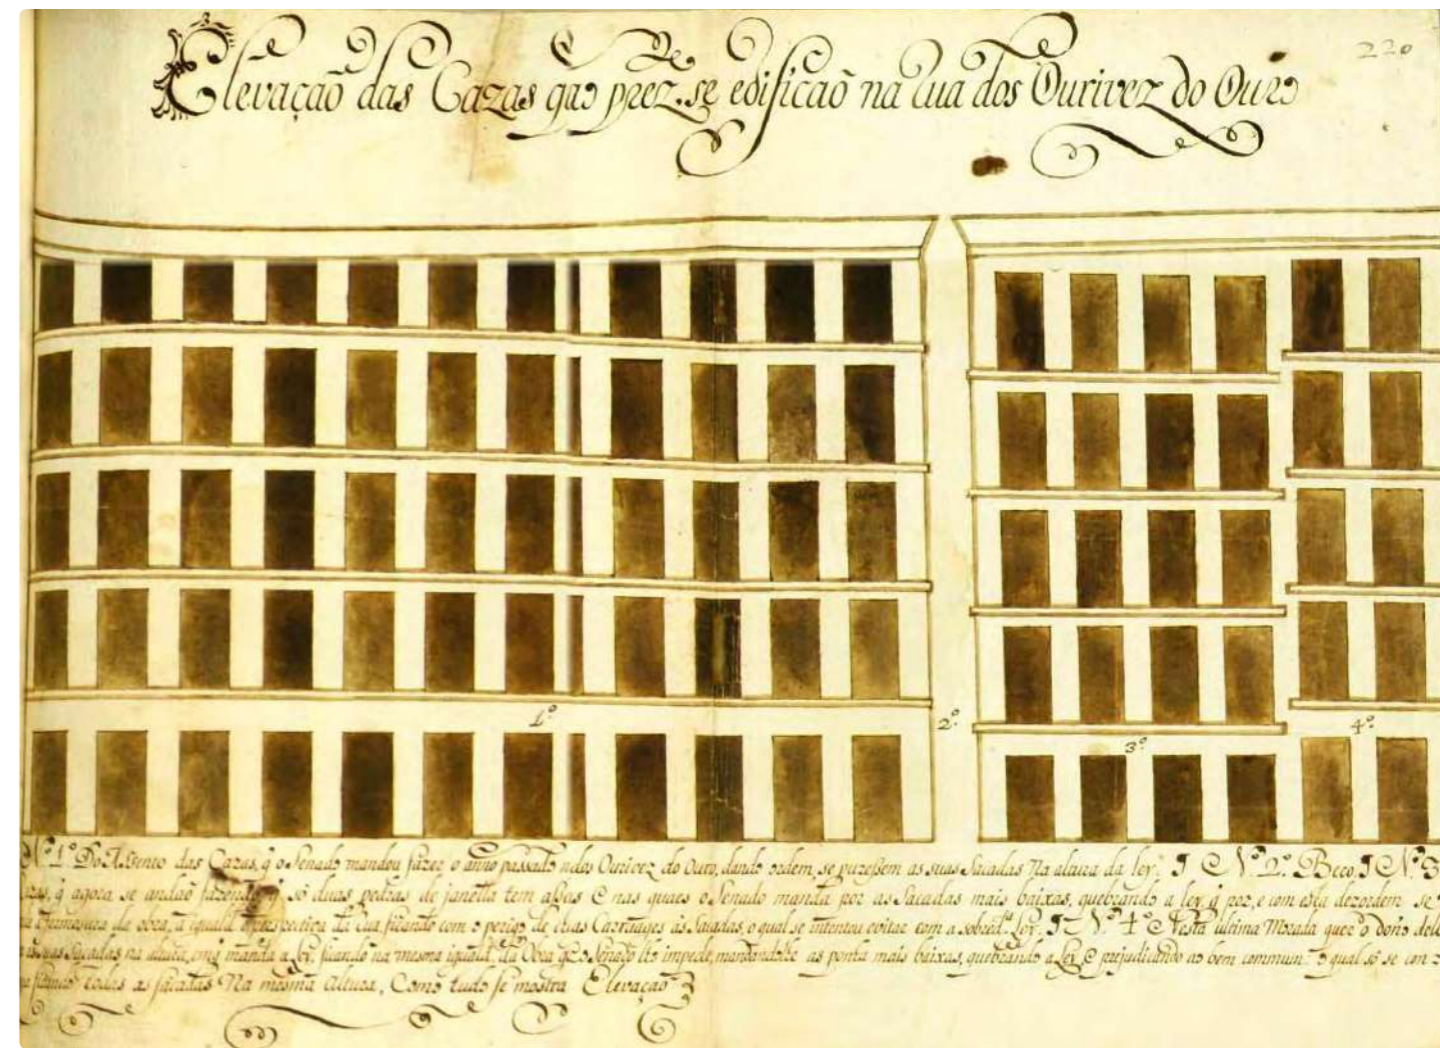 220
Elevação das Cazas q̃ ao prez.te se edificaõ na Rua dos Ourivez do Ouro
1º
2º
3º
4º
Nº 1º Do Assento das Cazas, q̃ o Senado mandou fazer o anno passado nados Ourivez do Ouro, dando ordem, se puzessem as suas Sacadas na altura da ley. Nº 2º Beco. Nº 3
q̃ agora se andaõ fazendo, q̃ só duas pedras de janella tem alsus e nas quaes o Senado manda por as Sacadas mais baixas, quebrando a ley q̃ poz, e com esta dezordem se
a fermozura da obra, a iguald.e perspectiva da Rua, ficando com o perigo de as Carruages as Sacadas, o qual se intentou evitar com a sobred.ta Ley. Nº 4º Nesta ultima Morada quer o dono
as suas Sacadas na altura, em q̃ manda a Ley, ficando na mesma iguald.e da Obra q̃ o Senado lho impede, mandandolhe as ponha mais baixas, quebrando a Ley, e prejudicando ao bem commum: o qual só se con
ficando todas as sacadas Na mesma altura, Como tudo se mostra Elevaçaõ